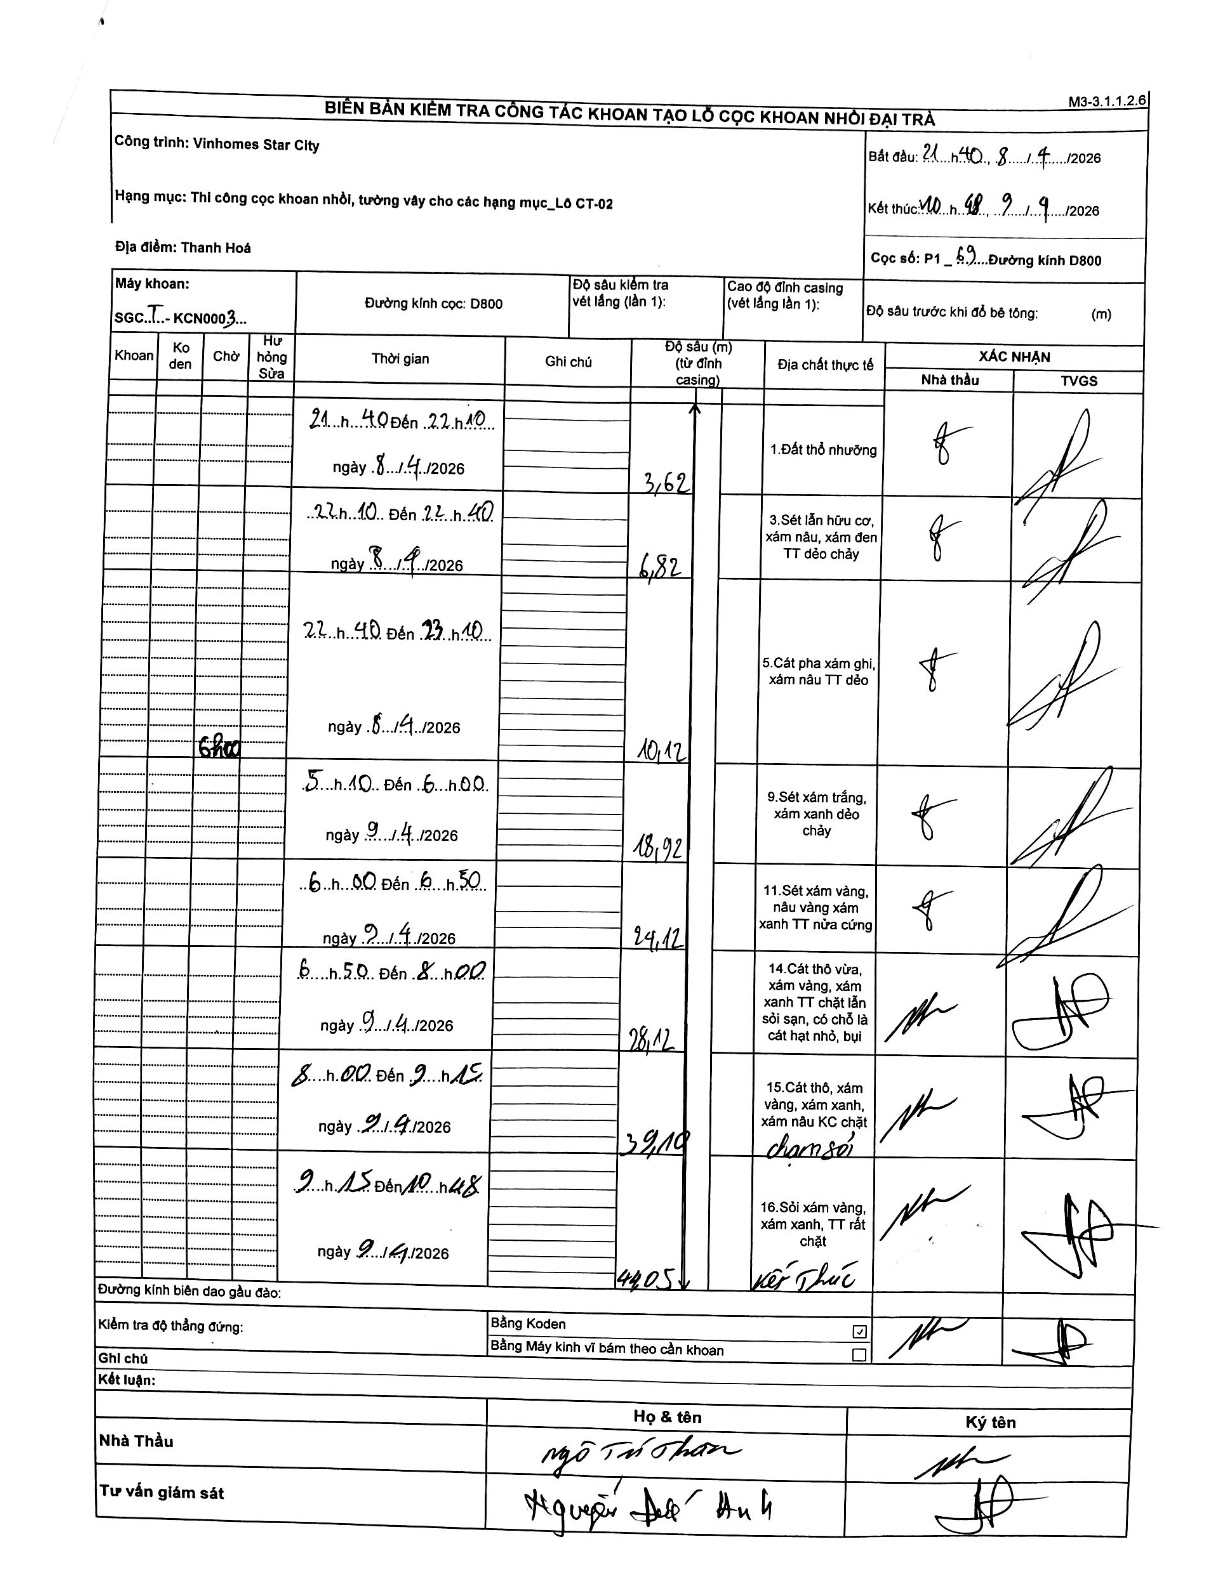 M3-3.1.1.2.6
BIÊN BẢN KIỂM TRA CÔNG TÁC KHOAN TẠO LỖ CỌC KHOAN NHỒI ĐẠI TRÀ
Công trình: Vinhomes Star City
Bắt đầu: 21...h40.., 8...../.4...../2026
Hạng mục: Thi công cọc khoan nhồi, tường vây cho các hạng mục_Lô CT-02
Kết thúc: 10..h..48.., ..9...../..4...../2026
Địa điểm: Thanh Hoá
Cọc số: P1 _ 69....Đường kính D800
Máy khoan:
SGC..T..- KCN0003...
Đường kính cọc: D800
Độ sâu kiểm tra vét lắng (lần 1):
Cao độ đỉnh casing (vét lắng lần 1):
Độ sâu trước khi đổ bê tông: (m)
Khoan
Ko den
Chờ
Hư hỏng Sửa
Thời gian
Ghi chú
Độ sâu (m) (từ đỉnh casing)
Địa chất thực tế
XÁC NHẬN
Nhà thầu
TVGS
21...h...40 Đến .22.h10...
ngày .8.../.4../2026
3,62
1.Đất thổ nhưỡng
..22h..10.. Đến 22..h.40
ngày .8.../.4../2026
6,82
3.Sét lẫn hữu cơ, xám nâu, xám đen TT dẻo chảy
22..h..40. Đến .23..h10...
ngày .8.../.4../2026
6h00
10,12
5.Cát pha xám ghi, xám nâu TT dẻo
.5...h..10.. Đến ..6...h.00.
ngày .9.../.4../2026
18,92
9.Sét xám trắng, xám xanh dẻo chảy
..6..h..00 Đến .6...h.50..
ngày .9.../.4../2026
24,12
11.Sét xám vàng, nâu vàng xám xanh TT nửa cứng
6....h.50.. Đến ..8..h00
ngày .9.../.4../2026
28,12
14.Cát thô vừa, xám vàng, xám xanh TT chặt lẫn sỏi sạn, có chỗ là cát hạt nhỏ, bụi
8....h.00. Đến ..9...h15.
ngày .9.../.4../2026
39,10
15.Cát thô, xám vàng, xám xanh, xám nâu KC chặt
chạm sỏi
9...h..15 Đến 10...h48
ngày .9.../.4../2026
44,05
16.Sỏi xám vàng, xám xanh, TT rất chặt
kết thúc
Đường kính biên dao gầu đào:
Kiểm tra độ thẳng đứng:
Bằng Koden ☑
Bằng Máy kinh vĩ bám theo cần khoan ☐
Ghi chú
Kết luận:
Họ & tên
Ký tên
Nhà Thầu
Ngô Trí
Tư vấn giám sát
Nguyễn Anh